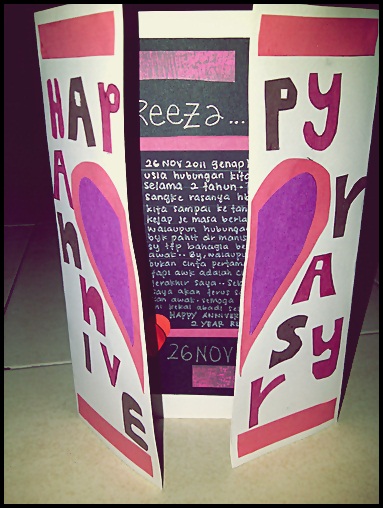 HAPPy
AnnivErSAry
Reeza...
26 NOV 2011 genap
usia hubungan kita
selama 2 tahun.
rasanya
kita sampai ke
kejap je masa
walaupun hubungan
byk pahit dr manis
sy ttp bahagia
awak.. By, walaupun
bukan cinta
tapi awk adalah
terakhir saya..
saya akan terus
awak. semoga
ni kekal abadi
HAPPY ANNIVER
2 YEAR
26NOV